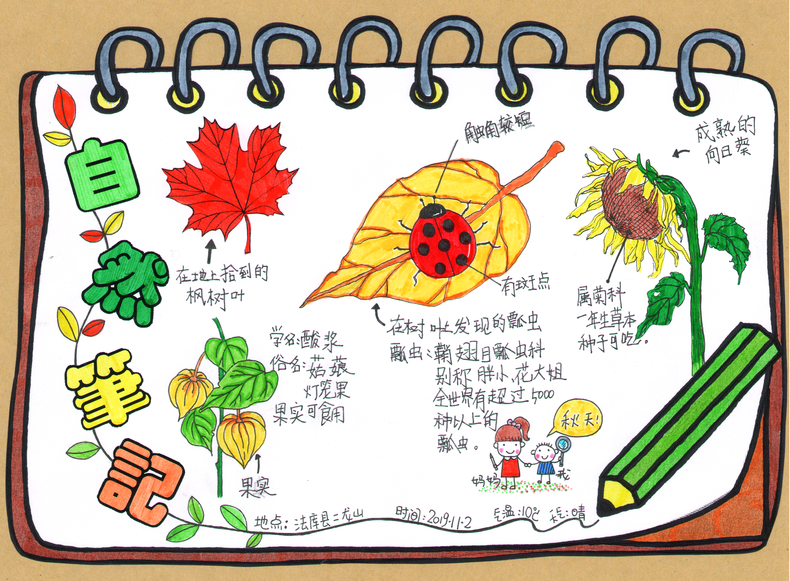 自然筆記
触角较短
成熟的
向日葵
在地上拾到的
枫树叶
有斑点
属菊科
一年生草本
种子可吃..
在树叶上发现的瓢虫
瓢虫:鞘翅目瓢虫科
别称胖小,花大姐
全世界有超过5000
种以上的
瓢虫。
学名:酸浆
俗名:菇娘
灯笼果
果实可食用
果实
秋天!
妈妈
我
地点:法库县二龙山
时间:2019.11.2
气温:10℃
天气:晴